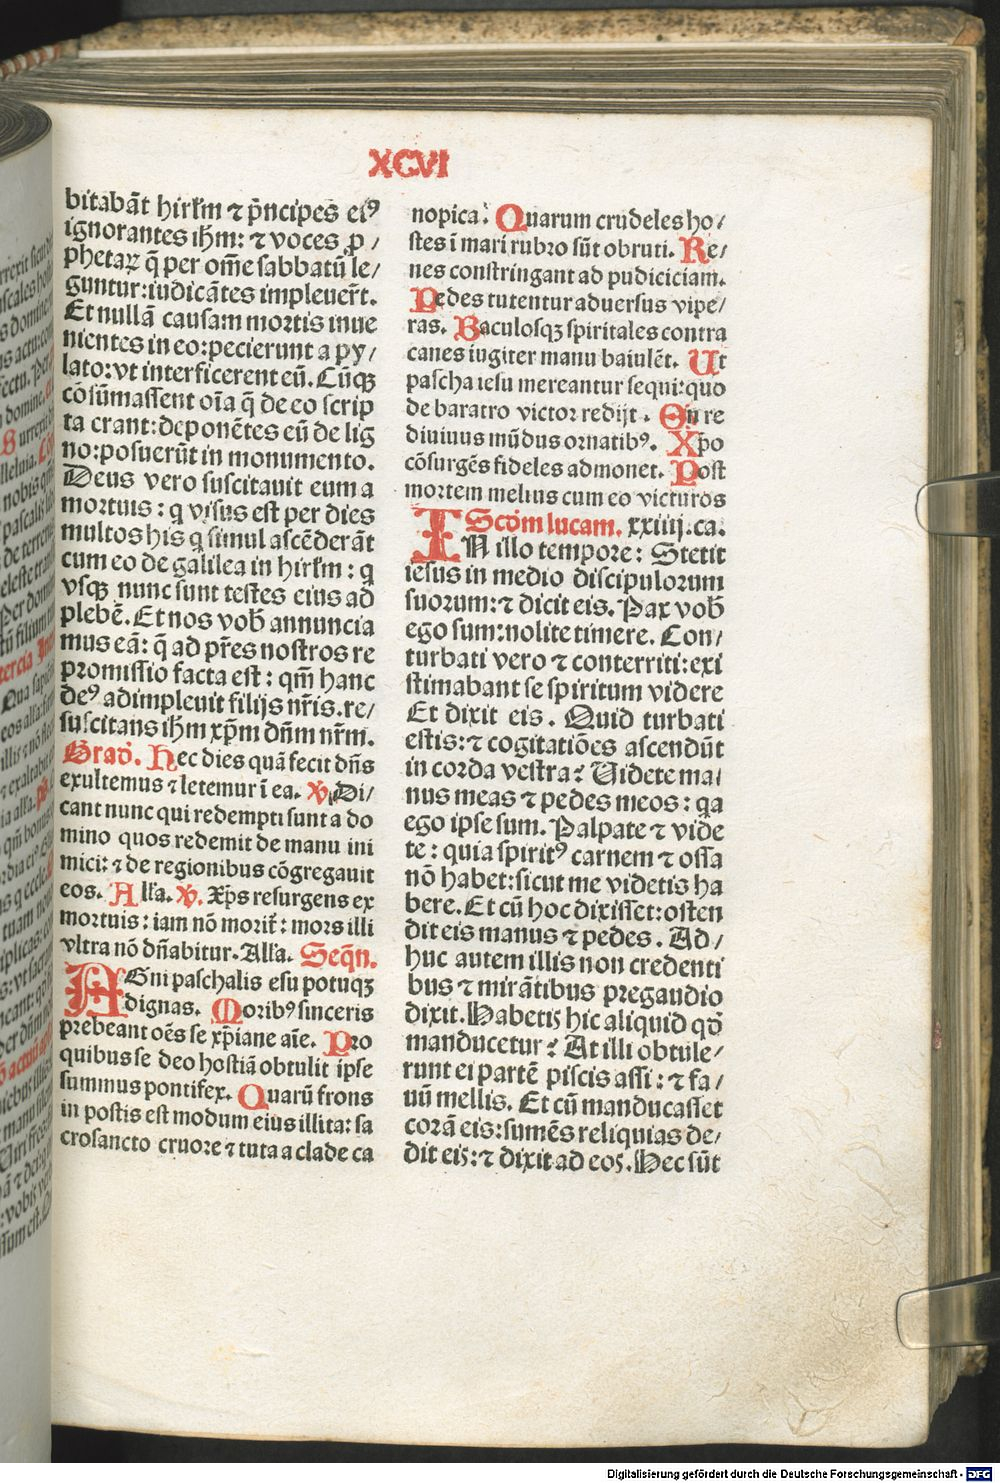 XCVI
bitabāt hirľm ⁊ p̄ncipes eiꝰ
ignorantes ihm̄: ⁊ voces ꝓ/
phetaꝝ q̄ per om̄e sabbatū le/
guntur: iudicātes impleuer̄t.
Et nullā causam mortis inue
nientes in eo: pecierunt a py/
lato: vt interficerent eū. Cūqꝫ
cōsūmassent oīa q̄ de eo scrip
ta erant: deponētes eū de lig
no: posuerūt in monumento.
Deus vero suscitauit eum a
mortuis: q visus est per dies
multos his q simul ascēderāt
cum eo de galilea in hirľm: q
vsqꝫ nunc sunt testes eius ad
plebē. Et nos vob̄ annuncia
mus eā: q̄ ad pr̄es nostros re
promissio facta est: qm̄ hanc
deꝰ adimpleuit filijs nr̄is. re/
suscitans ihm̄ xp̄m dn̄m nr̄m.
Grad̄. Hec dies quā fecit dn̄s
exultemus ⁊ letemur ī ea. ℣. Di/
cant nunc qui redempti sunt a do
mino quos redemit de manu ini
mici: ⁊ de regionibus cōgregauit
eos. Alľa. ℣. Xp̄s resurgens ex
mortuis: iam nō morit̄: mors illi
vltra nō dn̄abitur. Alľa. Seqn̄.
AGni paschalis esu potuqꝫ
dignas. Moribꝰ sinceris
prebeant oēs se xp̄iane aīe. Pro
quibus se deo hostiā obtulit ipse
summus pontifex. Quarū frons
in postis est modum eius illita: sa
crosancto cruore ⁊ tuta a clade ca
nopica. Quarum crudeles ho/
stes ī mari rubro sūt obruti. Re/
nes constringant ad pudiciciam.
Pedes tutentur aduersus vipe/
ras. Baculosqꝫ spiritales contra
canes iugiter manu baiulēt. Ut
pascha iesu mereantur sequi: quo
de baratro victor redijt. En re
diuiuus mūdus ornatibꝰ. Xp̄o
cōsurgēs fideles admonet. Post
mortem melius cum eo victuros
Scd̄m lucam. xxiiij. ca.
IN illo tempore: Stetit
iesus in medio discipulorum
suorum: ⁊ dicit eis. Pax vob̄
ego sum: nolite timere. Con/
turbati vero ⁊ conterriti: exi
stimabant se spiritum videre
Et dixit eis. Quid turbati
estis: ⁊ cogitatiōes ascendūt
in corda vestra? Uidete ma/
nus meas ⁊ pedes meos: qa
ego ipse sum. Palpate ⁊ vide
te: quia spiritꝰ carnem ⁊ ossa
nō habet: sicut me videtis ha
bere. Et cū hoc dixisset: osten
dit eis manus ⁊ pedes. Ad/
huc autem illis non credenti
bus ⁊ mirātibus pre gaudio
dixit. Habetis hic aliquid qd̄
manducetur? At illi obtule/
runt ei partē piscis assi: ⁊ fa/
uū mellis. Et cū manducasset
corā eis: sumēs reliquias de/
dit eis: ⁊ dixit ad eos. Hec sūt
Digitalisierung gefördert durch die Deutsche Forschungsgemeinschaft - DFG